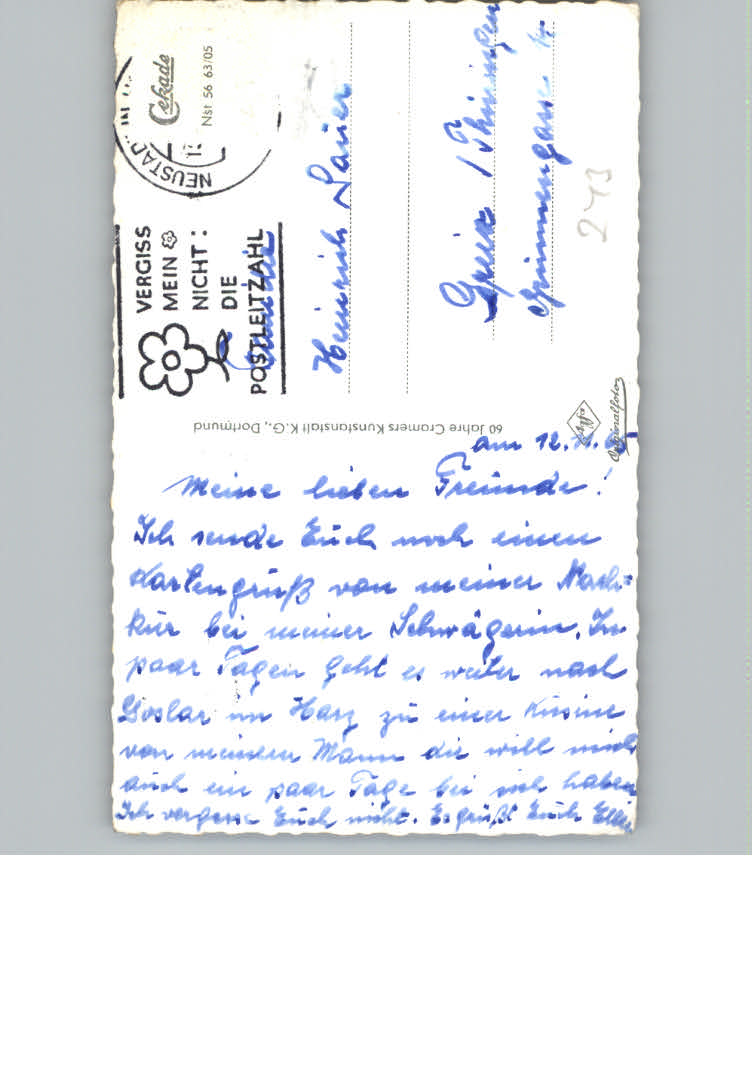 am 12.11.
Meine lieben Freunde!
Ich sende Euch noch einen
Kartengruß von meiner Nach=
kur bei meiner Schwägerin. In
paar Tagen geht es weiter nach
Goslar im Harz zu einer Kusine
von meinem Mann die will mich
auch ein paar Tage bei sich haben
Ich vergesse Euch nicht. Es grüßt Euch Elli
60 Jahre Cramers Kunstanstalt K.G., Dortmund
Agfa
Originalfoto
VERGISS
MEIN
NICHT:
DIE
POSTLEITZAHL
NEUSTADT IN
Cekade
Nst 56 63/05
Familie
Heinrich Lauer
Greiz / Thüringen
243